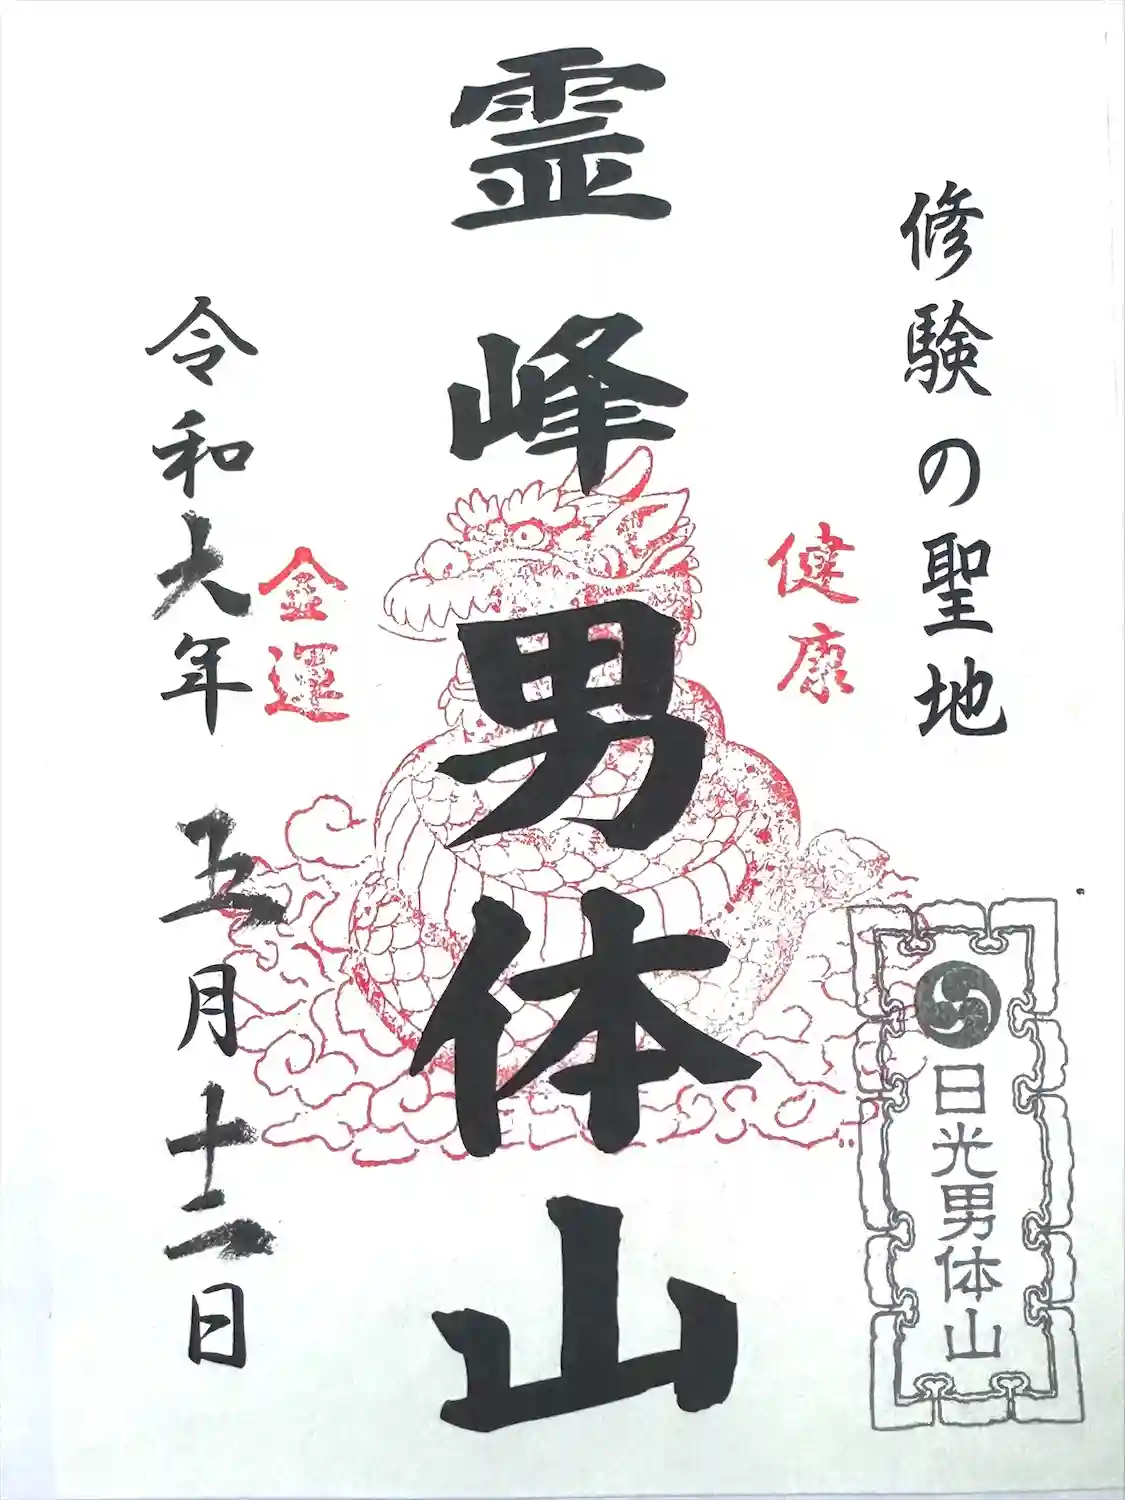 修験の聖地
日光男体山
健康
霊峰男体山
金運
令和六年五月十二日